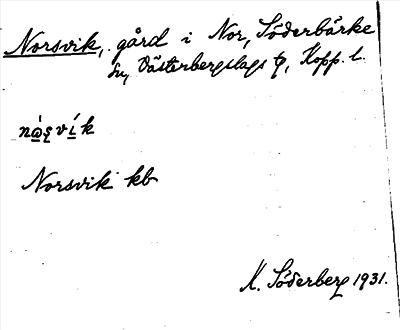 Norsvik, gård i Nor, Söderbärke
sn, Västerbergslags tg, Kopp. l.
nɷ̀ʂvík
Norsvik kb
K. Söderberg 1931.